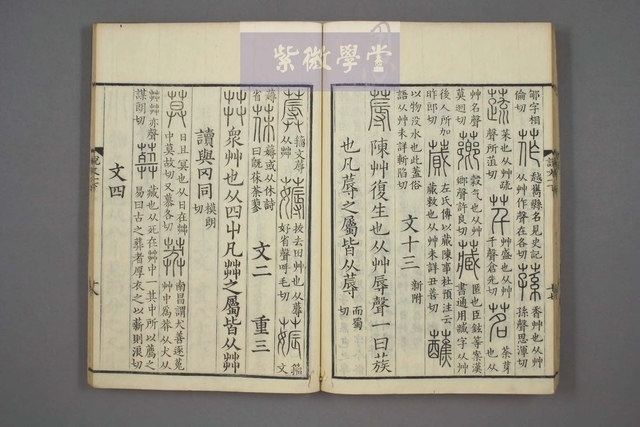 紫微學堂
郇字相倫切 莋 越嶲縣名見史記从艸作聲在各切 蓀 香艸也从艸孫聲思渾切
蔬 菜也从艸疏聲所菹切 芊 艸盛也从艸千聲倉先切 茗 荼芽也从
艸名聲莫迥切 薌 穀气也从艸鄉聲許良切 藏 匿也臣鉉等案漢書通用臧字从艸
後人所加昨郎切 蕆 左氏傳以蕆陳事杜預注云蕆敕也从艸未詳丑善切 蘸
以物沒水也此蓋俗語从艸未詳斬陷切 文十三 新附
蓐 陳艸復生也从艸辱聲一曰蔟
也凡蓐之屬皆从蓐 而蜀切
籒文蓐从茻 薅 拔去田艸也从蓐好省聲呼毛切 籒文
薅省 茠 薅或从休詩曰既茠荼蓼 文二 重三
茻 眾艸也从四屮凡茻之屬皆从茻
讀與冈同 模朗切
莫 日且冥也从日在茻中莫故切又慕各切 莽 南昌謂犬善逐菟艸中爲莽从犬从
茻茻亦聲謀朗切 葬 藏也从死在茻中一其中所以薦之易曰古之葬者厚衣之以薪則浪切
文四